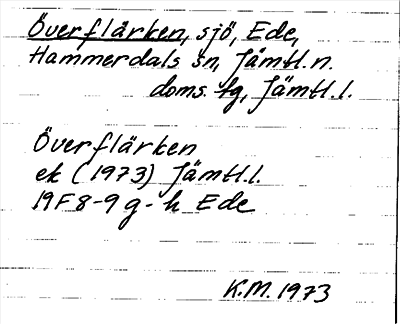 Överflärken, sjö, Ede,
Hammerdals sn, Jämtl.n.
doms. tg, Jämtl.l.
Överflärken
ek (1973) Jämtl.l.
19F8-9g-h Ede
K.M. 1973